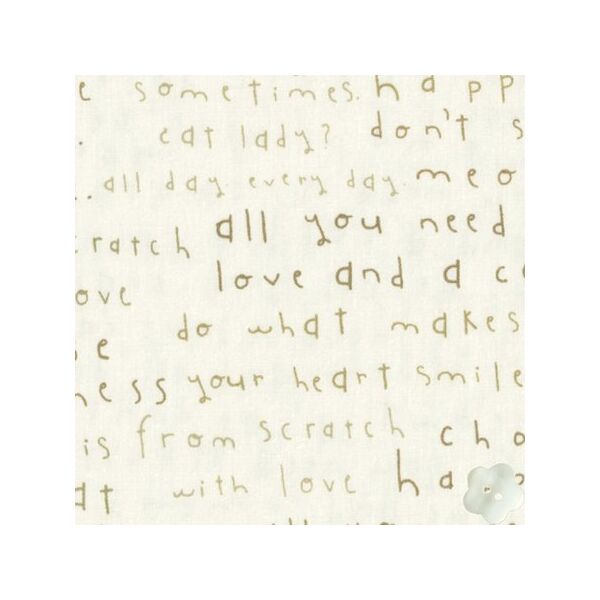 e sometimes. happ
. cat lady? don't s
.. all day every day. meo
cratch all you need
love and a c
ove
do what makes
e
ness your heart smile
is from scratch cho
at with love ha